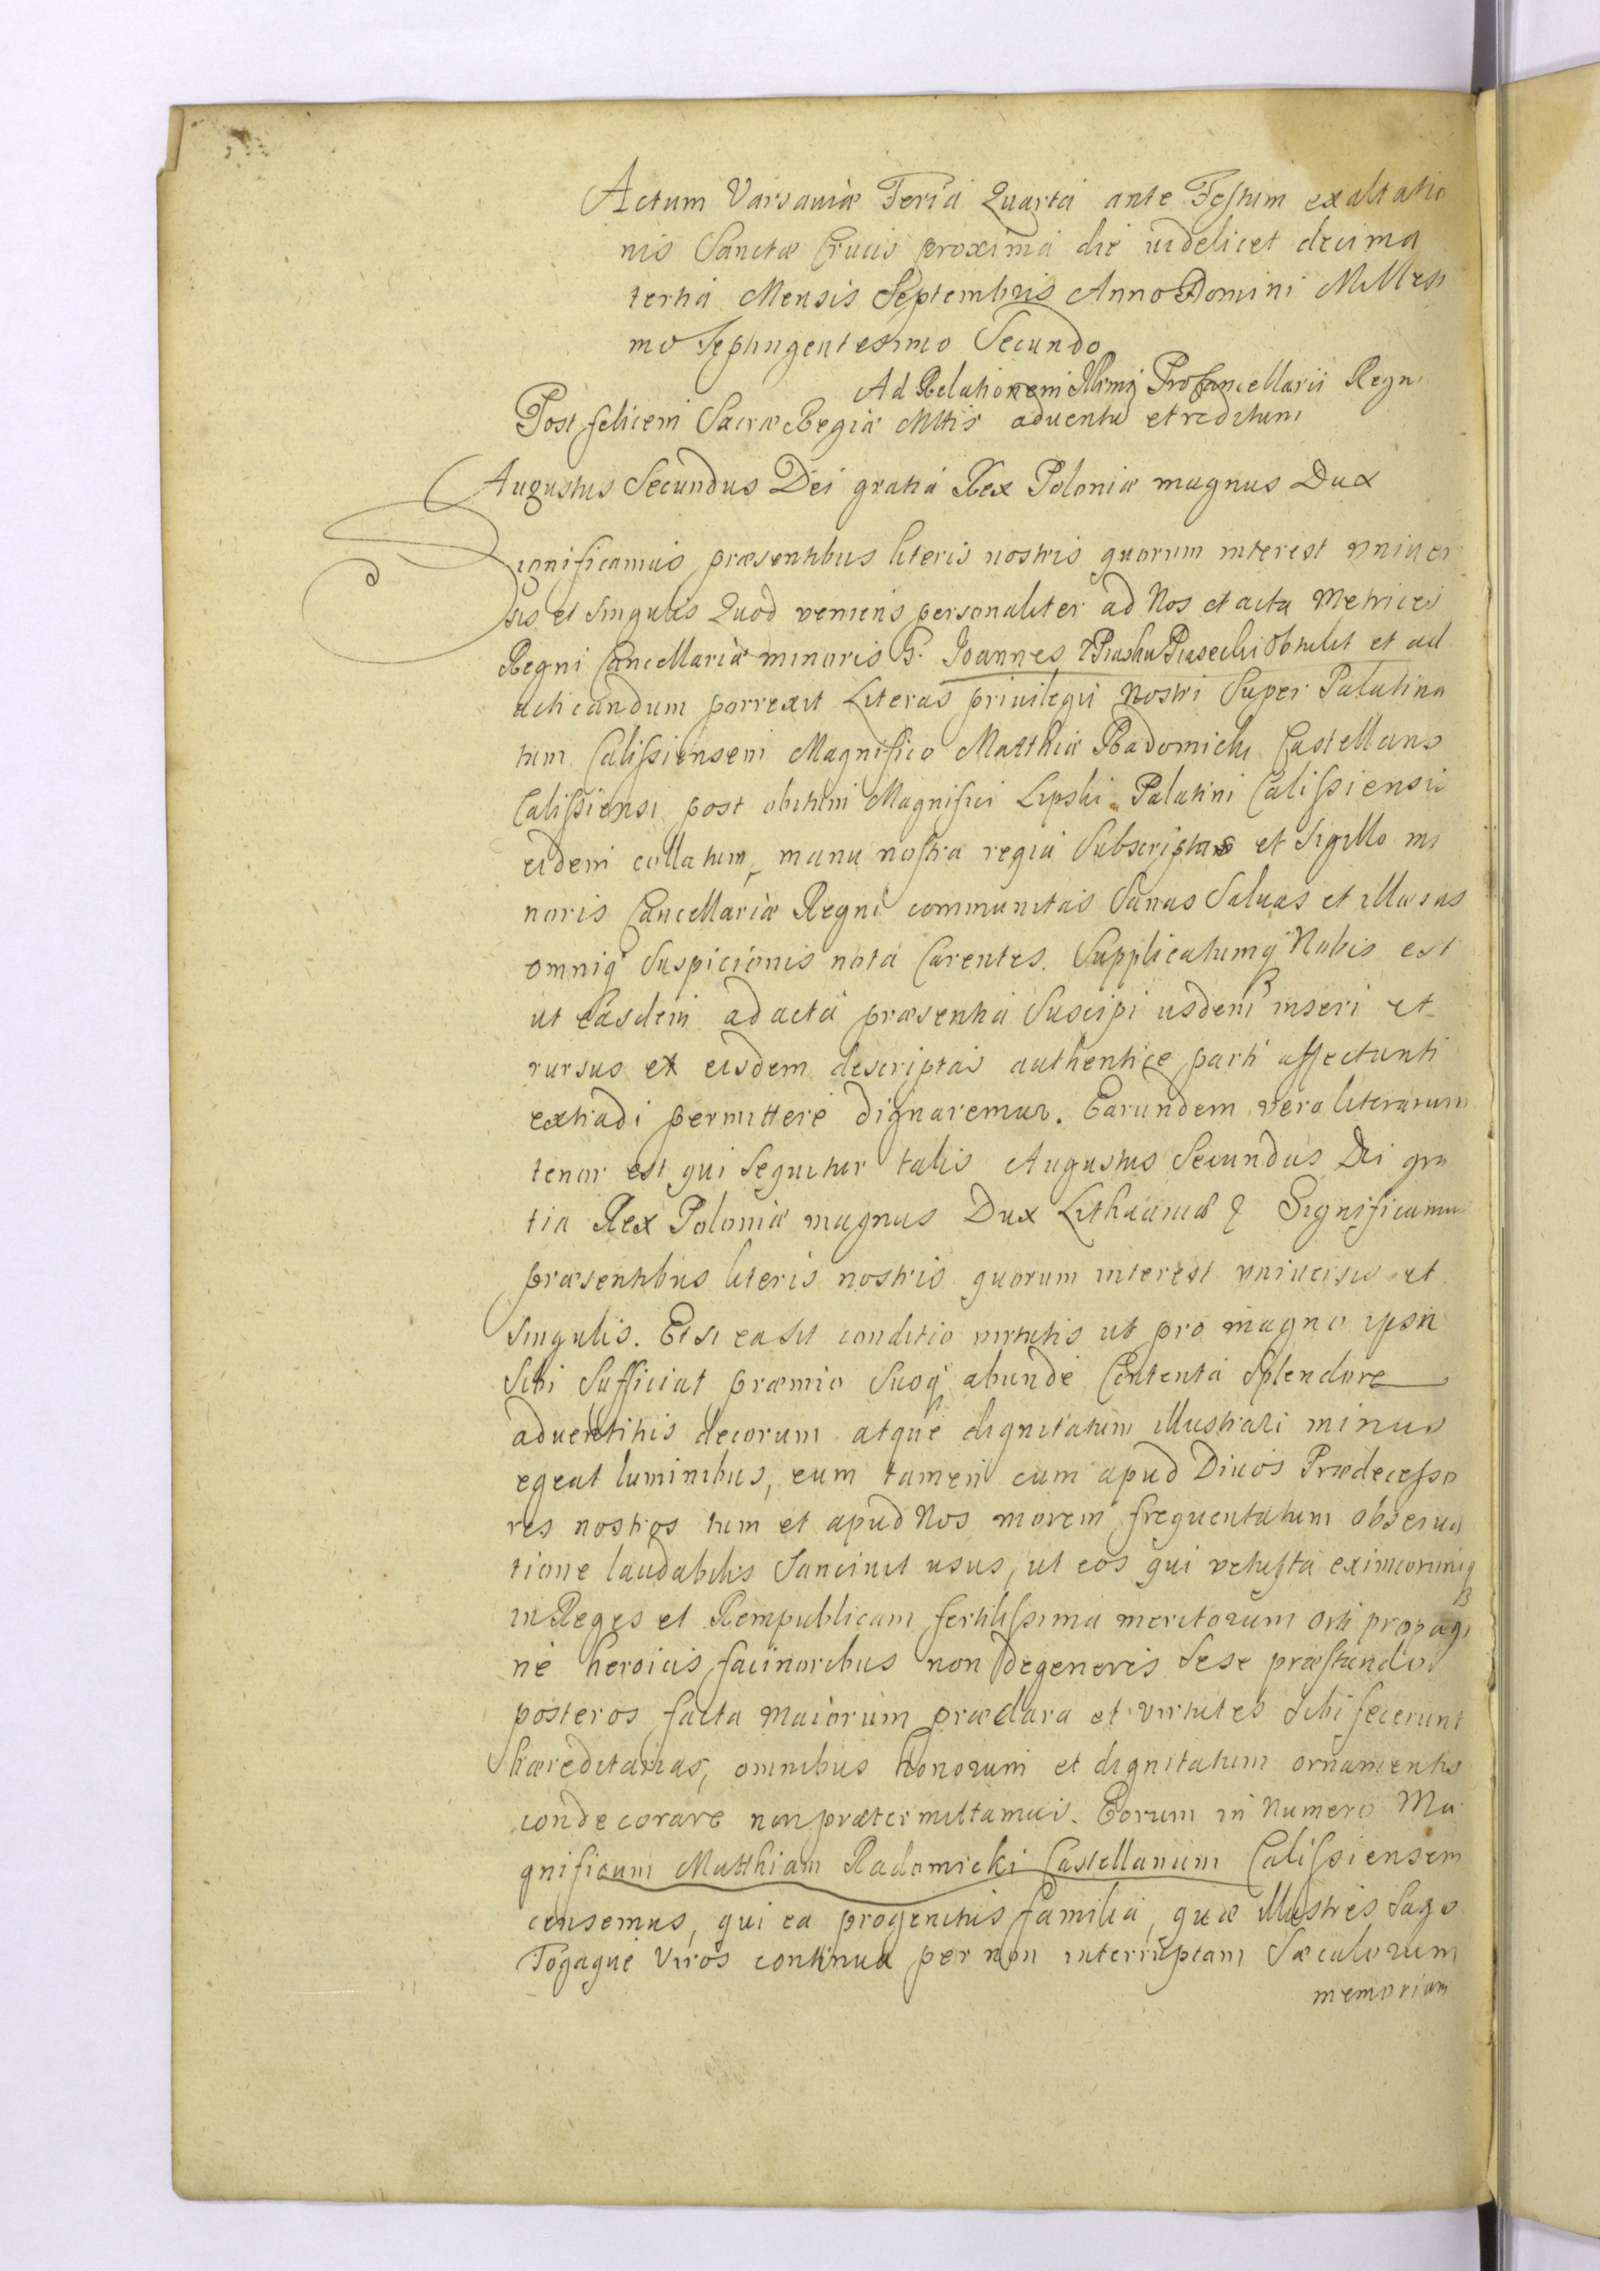 Actum Varsaviæ Feriâ Quartâ ante Festum exaltatio
nis Sanctæ Crucis proximâ die videlicet decima
tertiâ Mensis Septembris Anno Domini Millesi
mo Septingentesimo Secundo
Ad Relationem Illrmi Procancellarii Regni
Post felicem Sacræ Regiæ Mttis adventu et reditum
Augustus Secundus Dei gratiâ Rex Poloniæ magnus Dux
Significamus præsentibus literis nostris quorum interest univer
sis et singulis Quod veniens personaliter ad Nos et acta Metrices
Regni Cancellariæ minoris G. Joannes Piasecki obtulit et ad
acticandum porrexit Literas privilegii Nostri Super Palatina
tum Calissiensem Magnifico Matthiæ Radomicki Castellano
Calissiensi post obitum Magnifici Lipski Palatini Calissiensis
eidem collatum, manu nostra regia Subscriptas et Sigillo mi
noris Cancellariæ Regni communitas Sanas Salvas et illæsas
omniq suspicionis nota Carentes. Supplicatumq Nobis est
ut easdem ad acta præsentia Suscipi iisdem inseri et
rursus ex eisdem descriptas authentice parti affectanti
extradi permittere dignaremur. Earundem vero literarum
tenor est qui sequitur talis Augustus Secundus Dei gra
tia Rex Poloniæ magnus Dux Lithuaniæ & Significamus
præsentibus literis nostris quorum interest universis et
singulis. Etsi ea sit conditio virtutis ut pro magno ipsa
sibi sufficiat præmio suoq abunde Contenta Splendore
adventitiis decorum atque dignitatum illustrari minus
egeat luminibus, eum tamen cum apud Divos Prædecesso
res nostros tum et apud Nos morem frequentatum observa
tione laudabilis Sancivit usus, ut eos qui vetusta eximiorumq
in Reges et Rempublicam fertilissima meritorum orti propagi
ne heroicis facinoribus non degeneres sese præstando
posteros facta maiorum præclara et virtutes sibi fecerunt
hæreditarias, omnibus honorum et dignitatum ornamentis
condecorare non prætermittamus. Eorum in Numero Ma
gnificum Matthiam Radomicki Castellanum Calissiensem
censemus, qui ea progenitus familiâ, quæ illustres Sago
Togaque Viros continua per non interruptam Sæculorum
memoriam